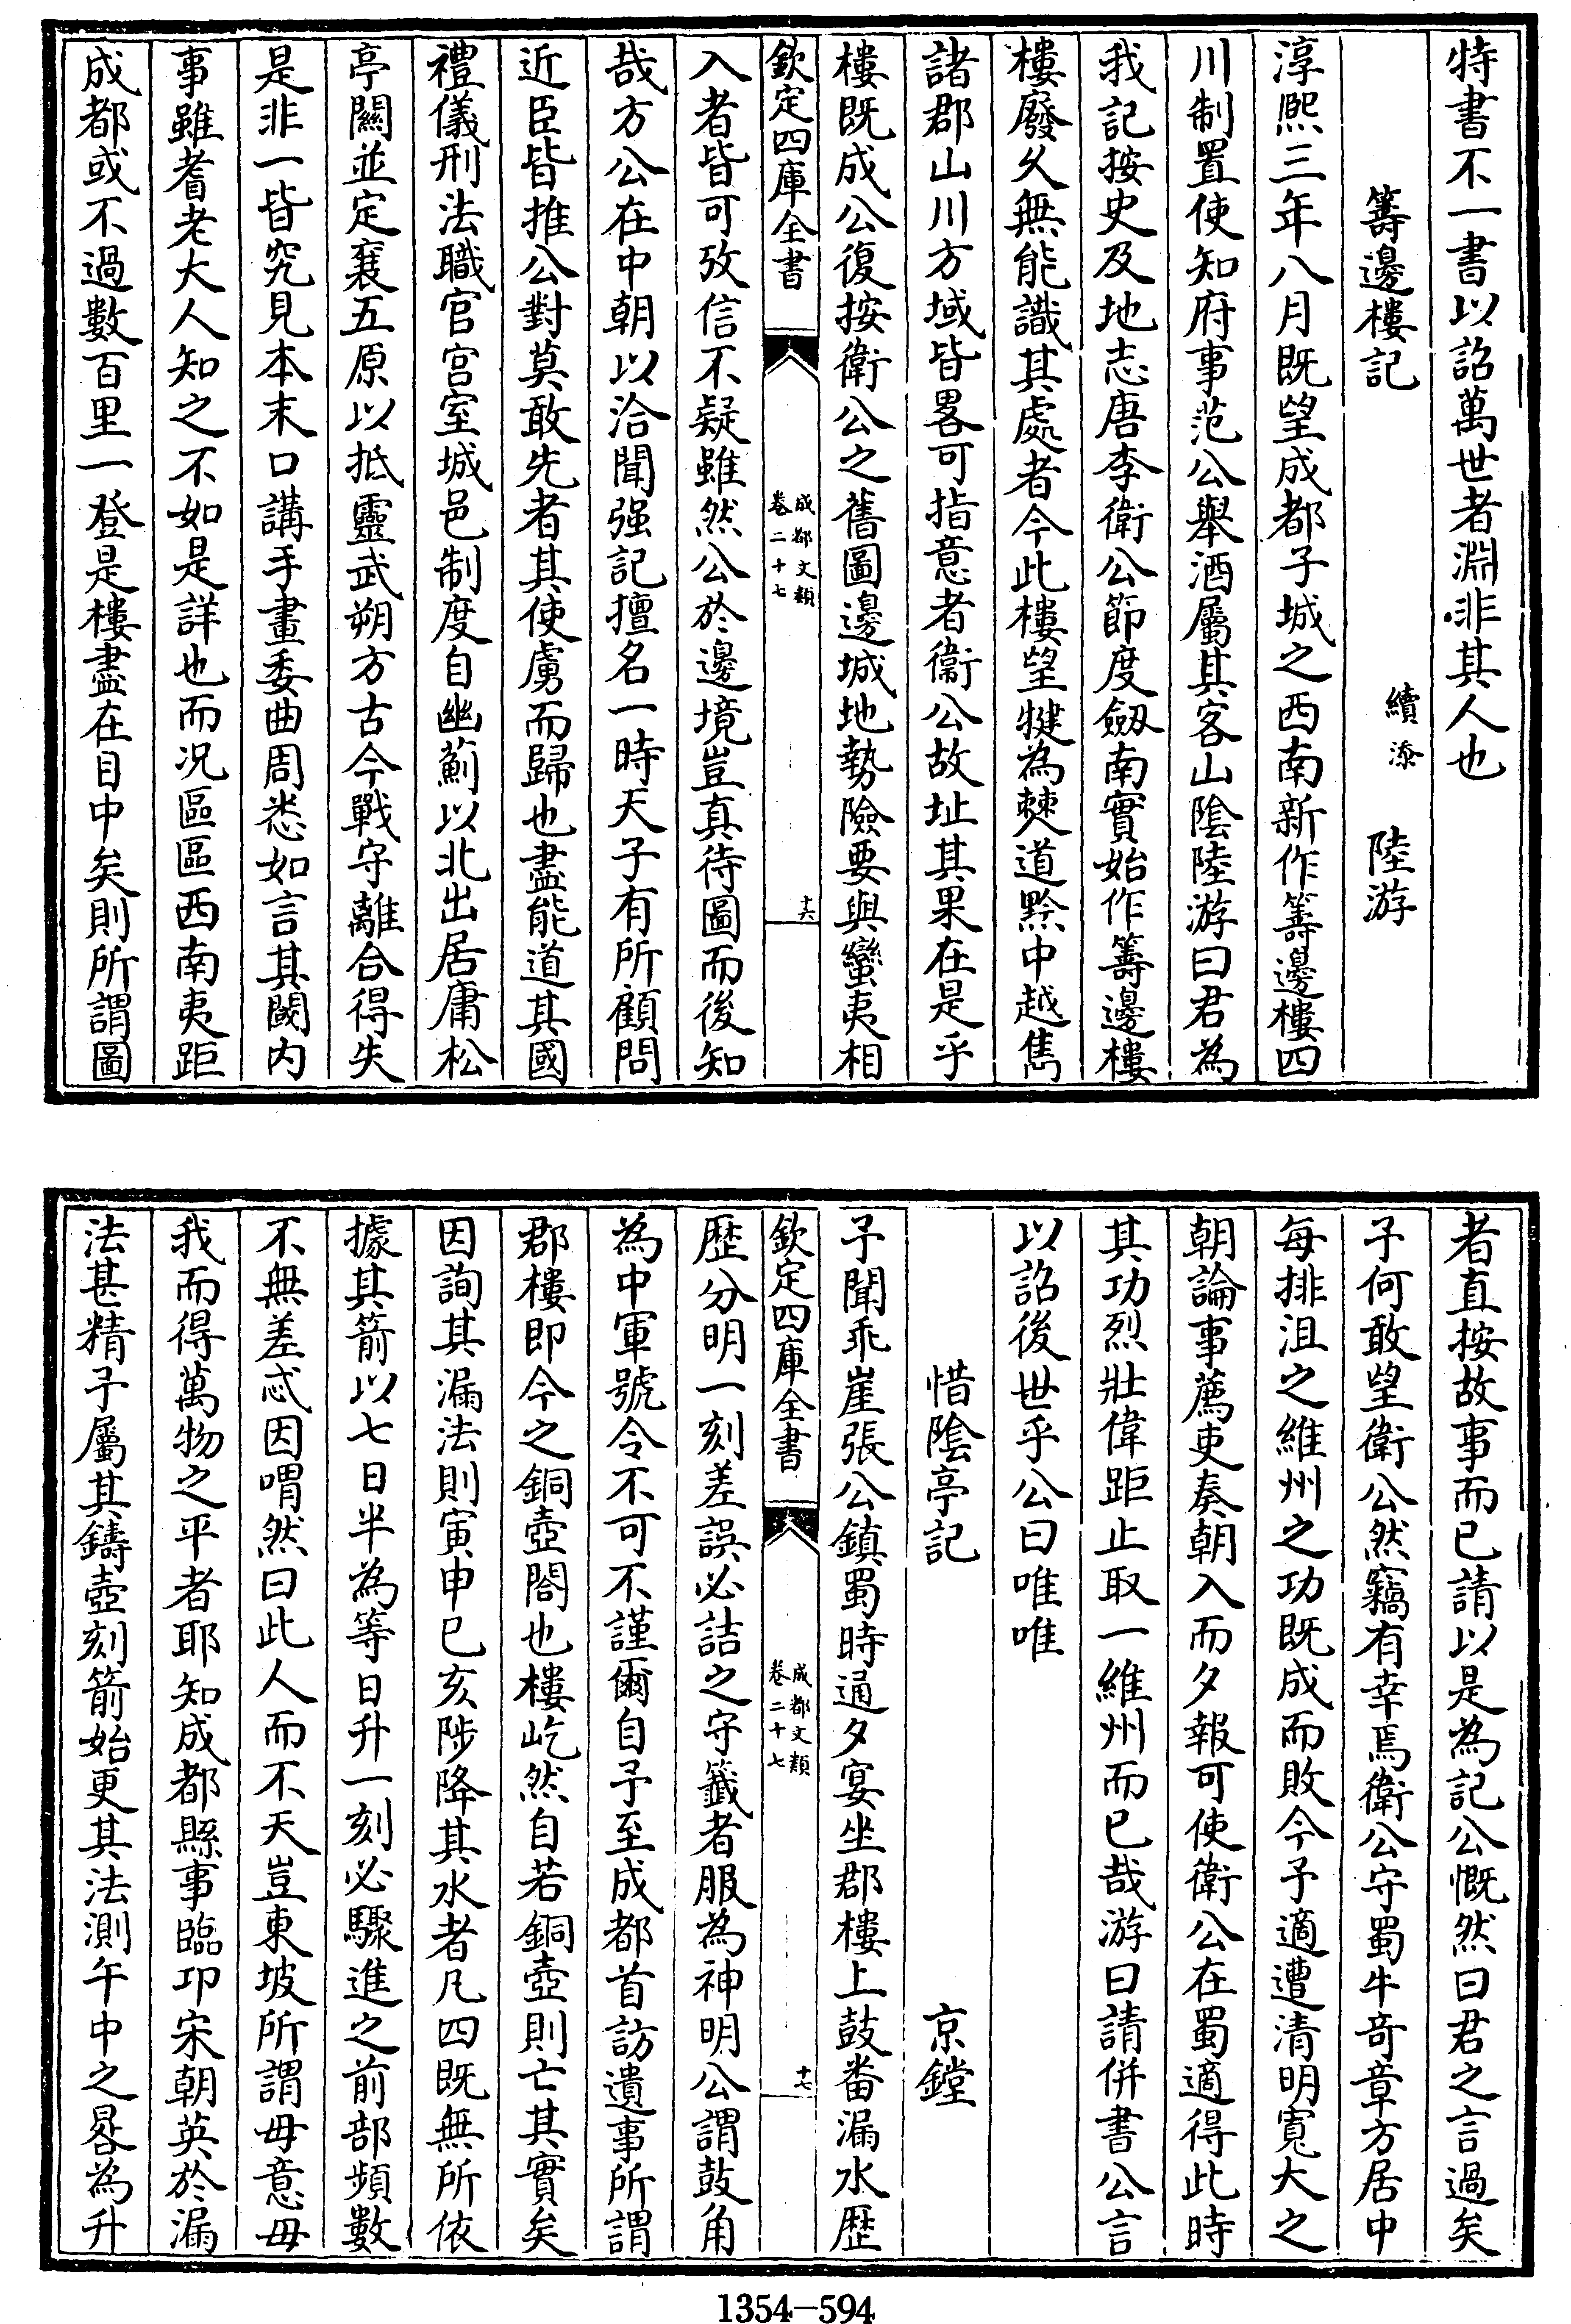 特書不一書以詔萬世者淵非其人也
籌邊樓記 續添 陸游
淳熙三年八月既望成都子城之西南新作籌邊樓四
川制置使知府事范公舉酒屬其客山陰陸游曰君為
我記按史及地志唐李衛公節度劔南實始作籌邊樓
樓廢乆無能識其處者今此樓望犍為僰道黔中越雋
諸郡山川方域皆畧可指意者衞公故址其果在是乎
樓既成公復按衛公之舊圖邊城地勢險要與蠻夷相
欽定四庫全書
成都文類
卷二十七
十六
入者皆可攷信不疑雖然公於邊境豈真待圖而後知
哉方公在中朝以洽聞强記擅名一時天子有所顧問
近臣皆推公對莫敢先者其使虜而歸也盡能道其國
禮儀刑法職官宫室城邑制度自幽薊以北出居庸松
亭關並定襄五原以抵靈武朔方古今戰守離合得失
是非一皆究見本末口講手畫委曲周悉如言其閾内
事雖耆老大人知之不如是詳也而况區區西南夷距
成都或不過數百里一登是樓盡在目中矣則所謂圖
者直按故事而已請以是為記公慨然曰君之言過矣
予何敢望衛公然竊有幸焉衛公守蜀牛竒章方居中
每排沮之維州之功既成而敗今予適遭清明寛大之
朝論事薦吏奏朝入而夕報可使衛公在蜀適得此時
其功烈壯偉距止取一維州而已哉游曰請併書公言
以詔後世乎公曰唯唯
惜隂亭記 京鏜
予聞乖崖張公鎮蜀時通夕宴坐郡樓上鼓畨漏水歴
欽定四庫全書
成都文類
卷二十七
十七
歴分明一刻差誤必詰之守籤者服為神明公謂鼓角
為中軍號令不可不謹爾自予至成都首訪遺事所謂
郡樓即今之銅壺閣也樓屹然自若銅壺則亡其實矣
因詢其漏法則寅申巳亥陟降其水者凡四既無所依
據其箭以七日半為等日升一刻必驟進之前部頻數
不無差忒因喟然曰此人而不天豈東坡所謂毋意毋
我而得萬物之平者耶知成都縣事臨邛宋朝英於漏
法甚精予屬其鑄壺刻箭始更其法測午中之晷為升
1354—594